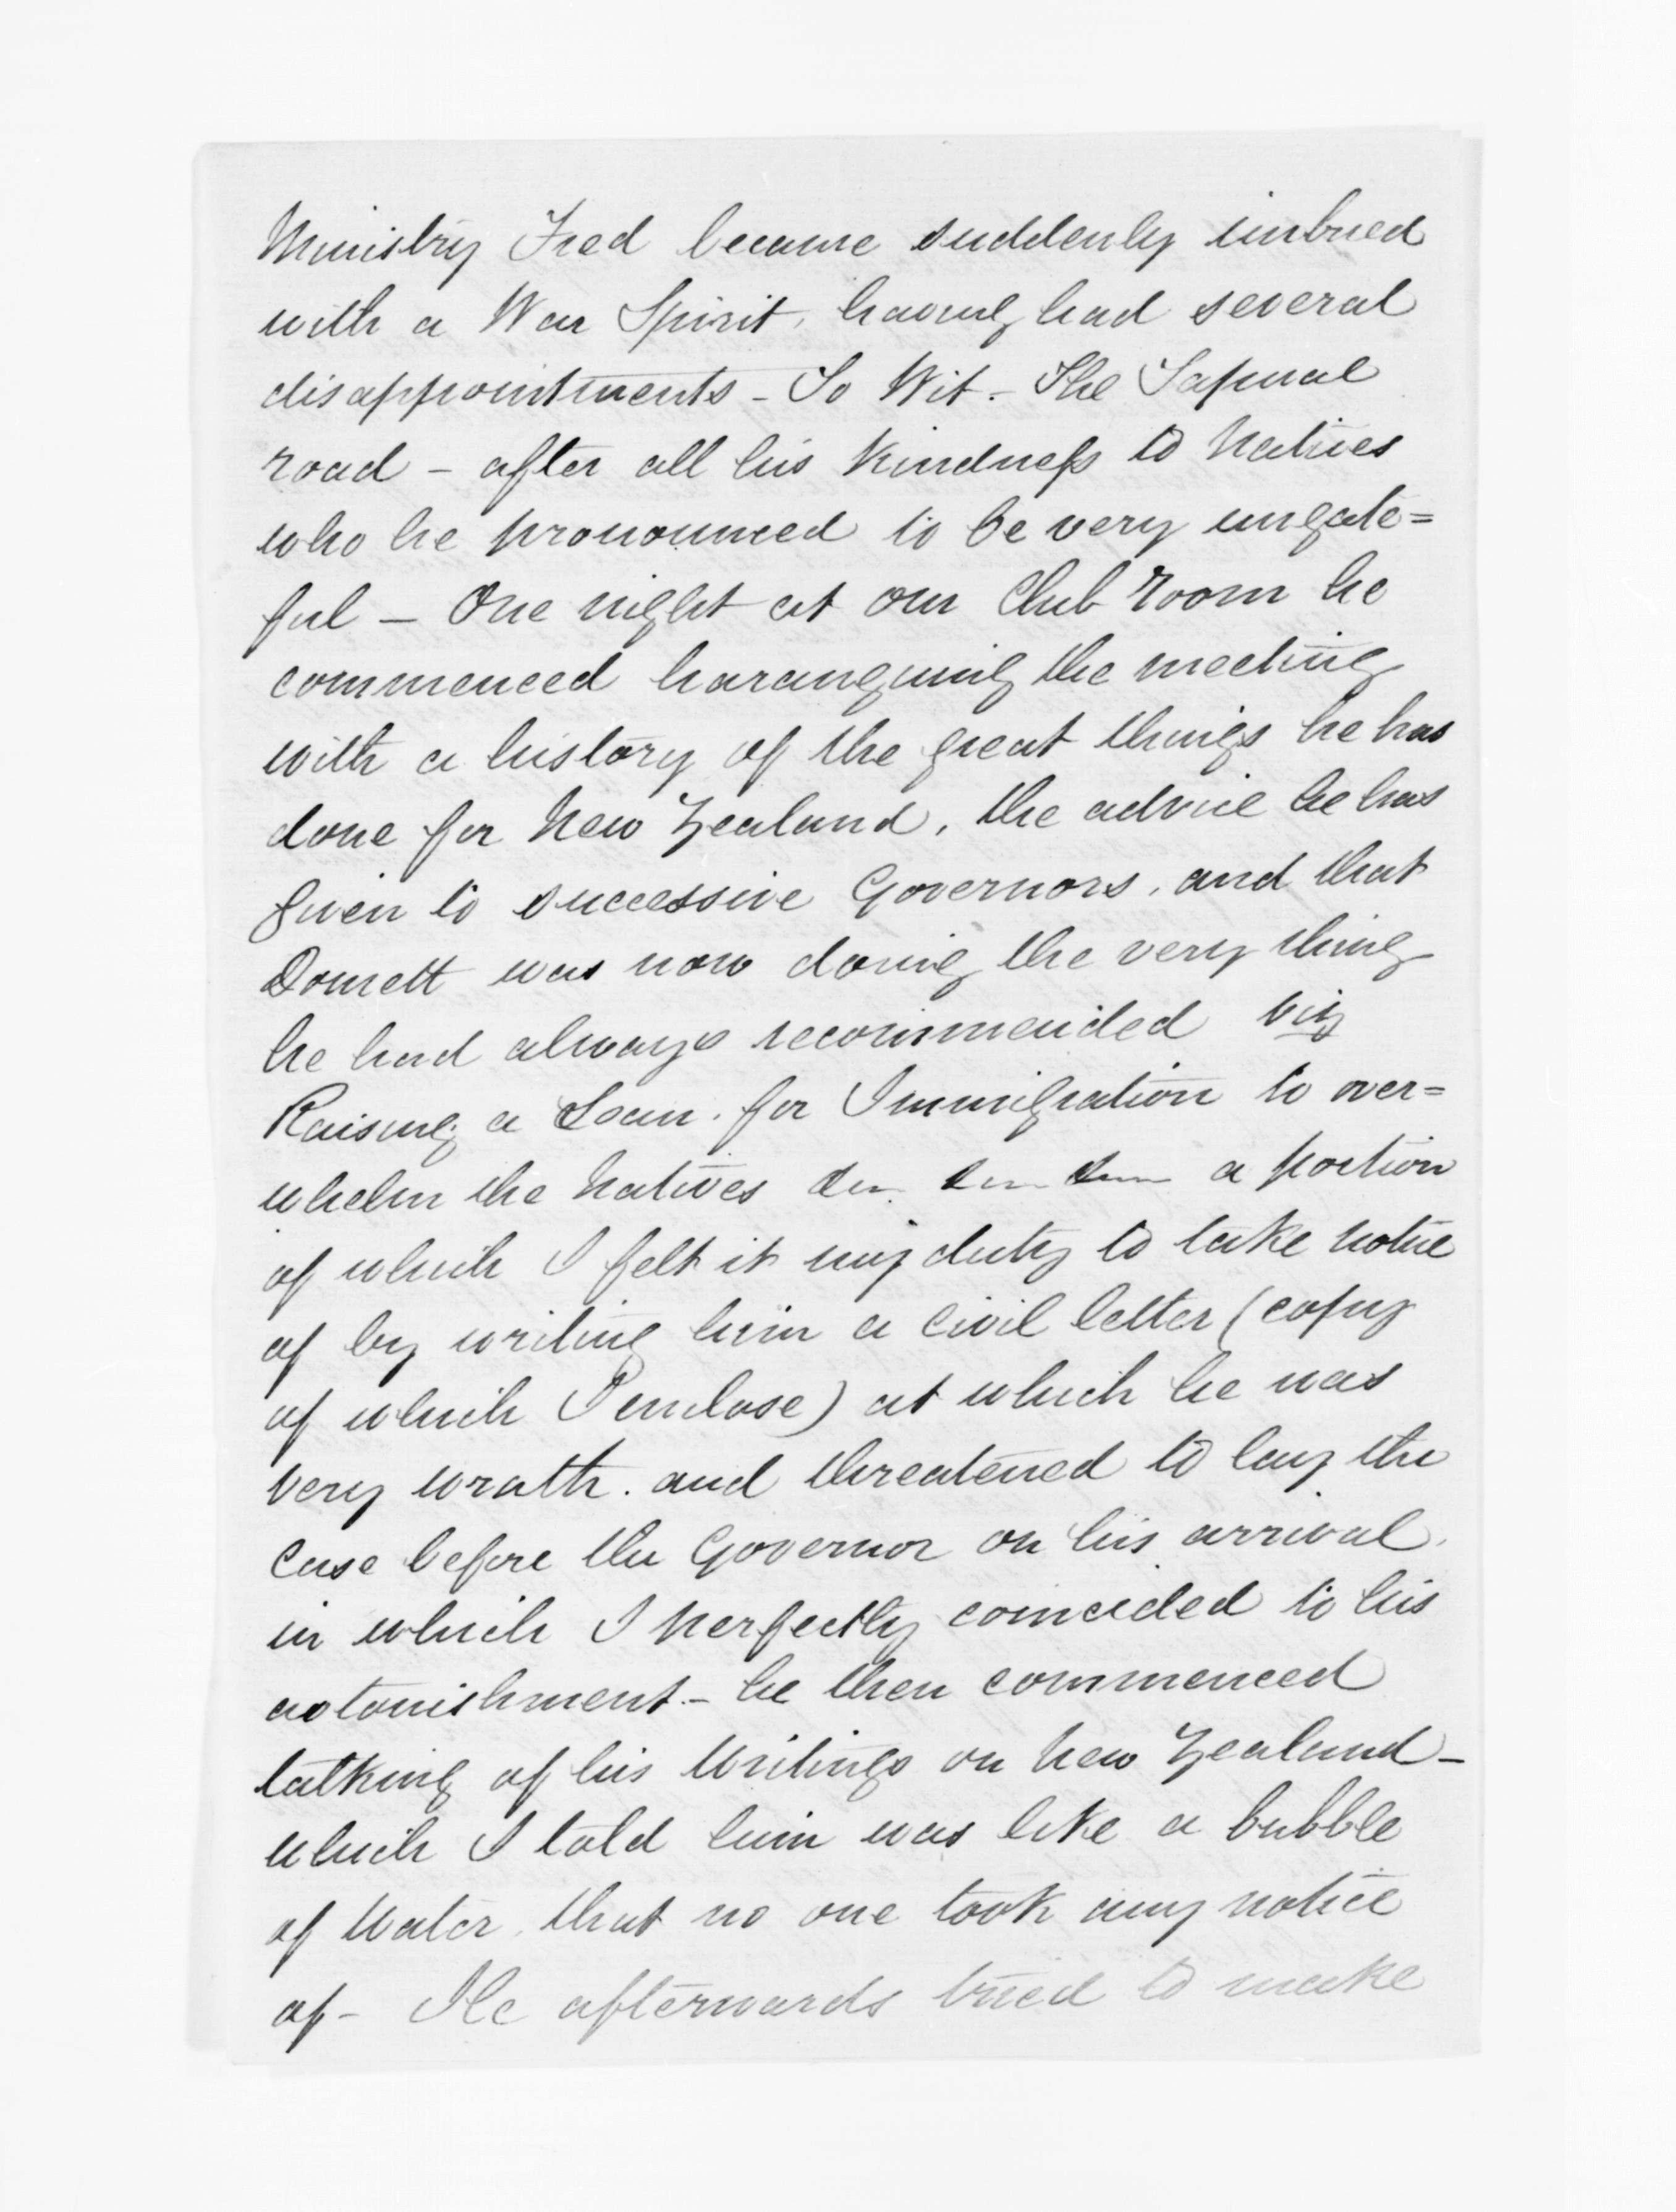 Ministry Fred became suddenly imbued
with a War Spirit, having had several
disappointments - To Wit - The
road - after all his Kindness to Natives
who he pronounced to be very ungate=
ful - One night at our Club room he
commenced haranguing the meeting
with a history of the great things he has
done for New Zealand, the advice he has
given to successive Governors, and that
Domett was now doing the very thing
he had always recommended viz
Raising a Loan for Immigration to over=
whelm the Natives a portion
of which I felt it my duty to take notice
of by writing him a civil letter (copy
of which I enclose) at which he was
very wrath. and threatened to lay the
case before the Governor on his arrival.
in which I perfectly coincided to his
astonishment - he then commenced
talking of his Writings on New Zealand -
which I told him was like a bubble
of Water, that no one took any notice
of - He afterwards tried to make